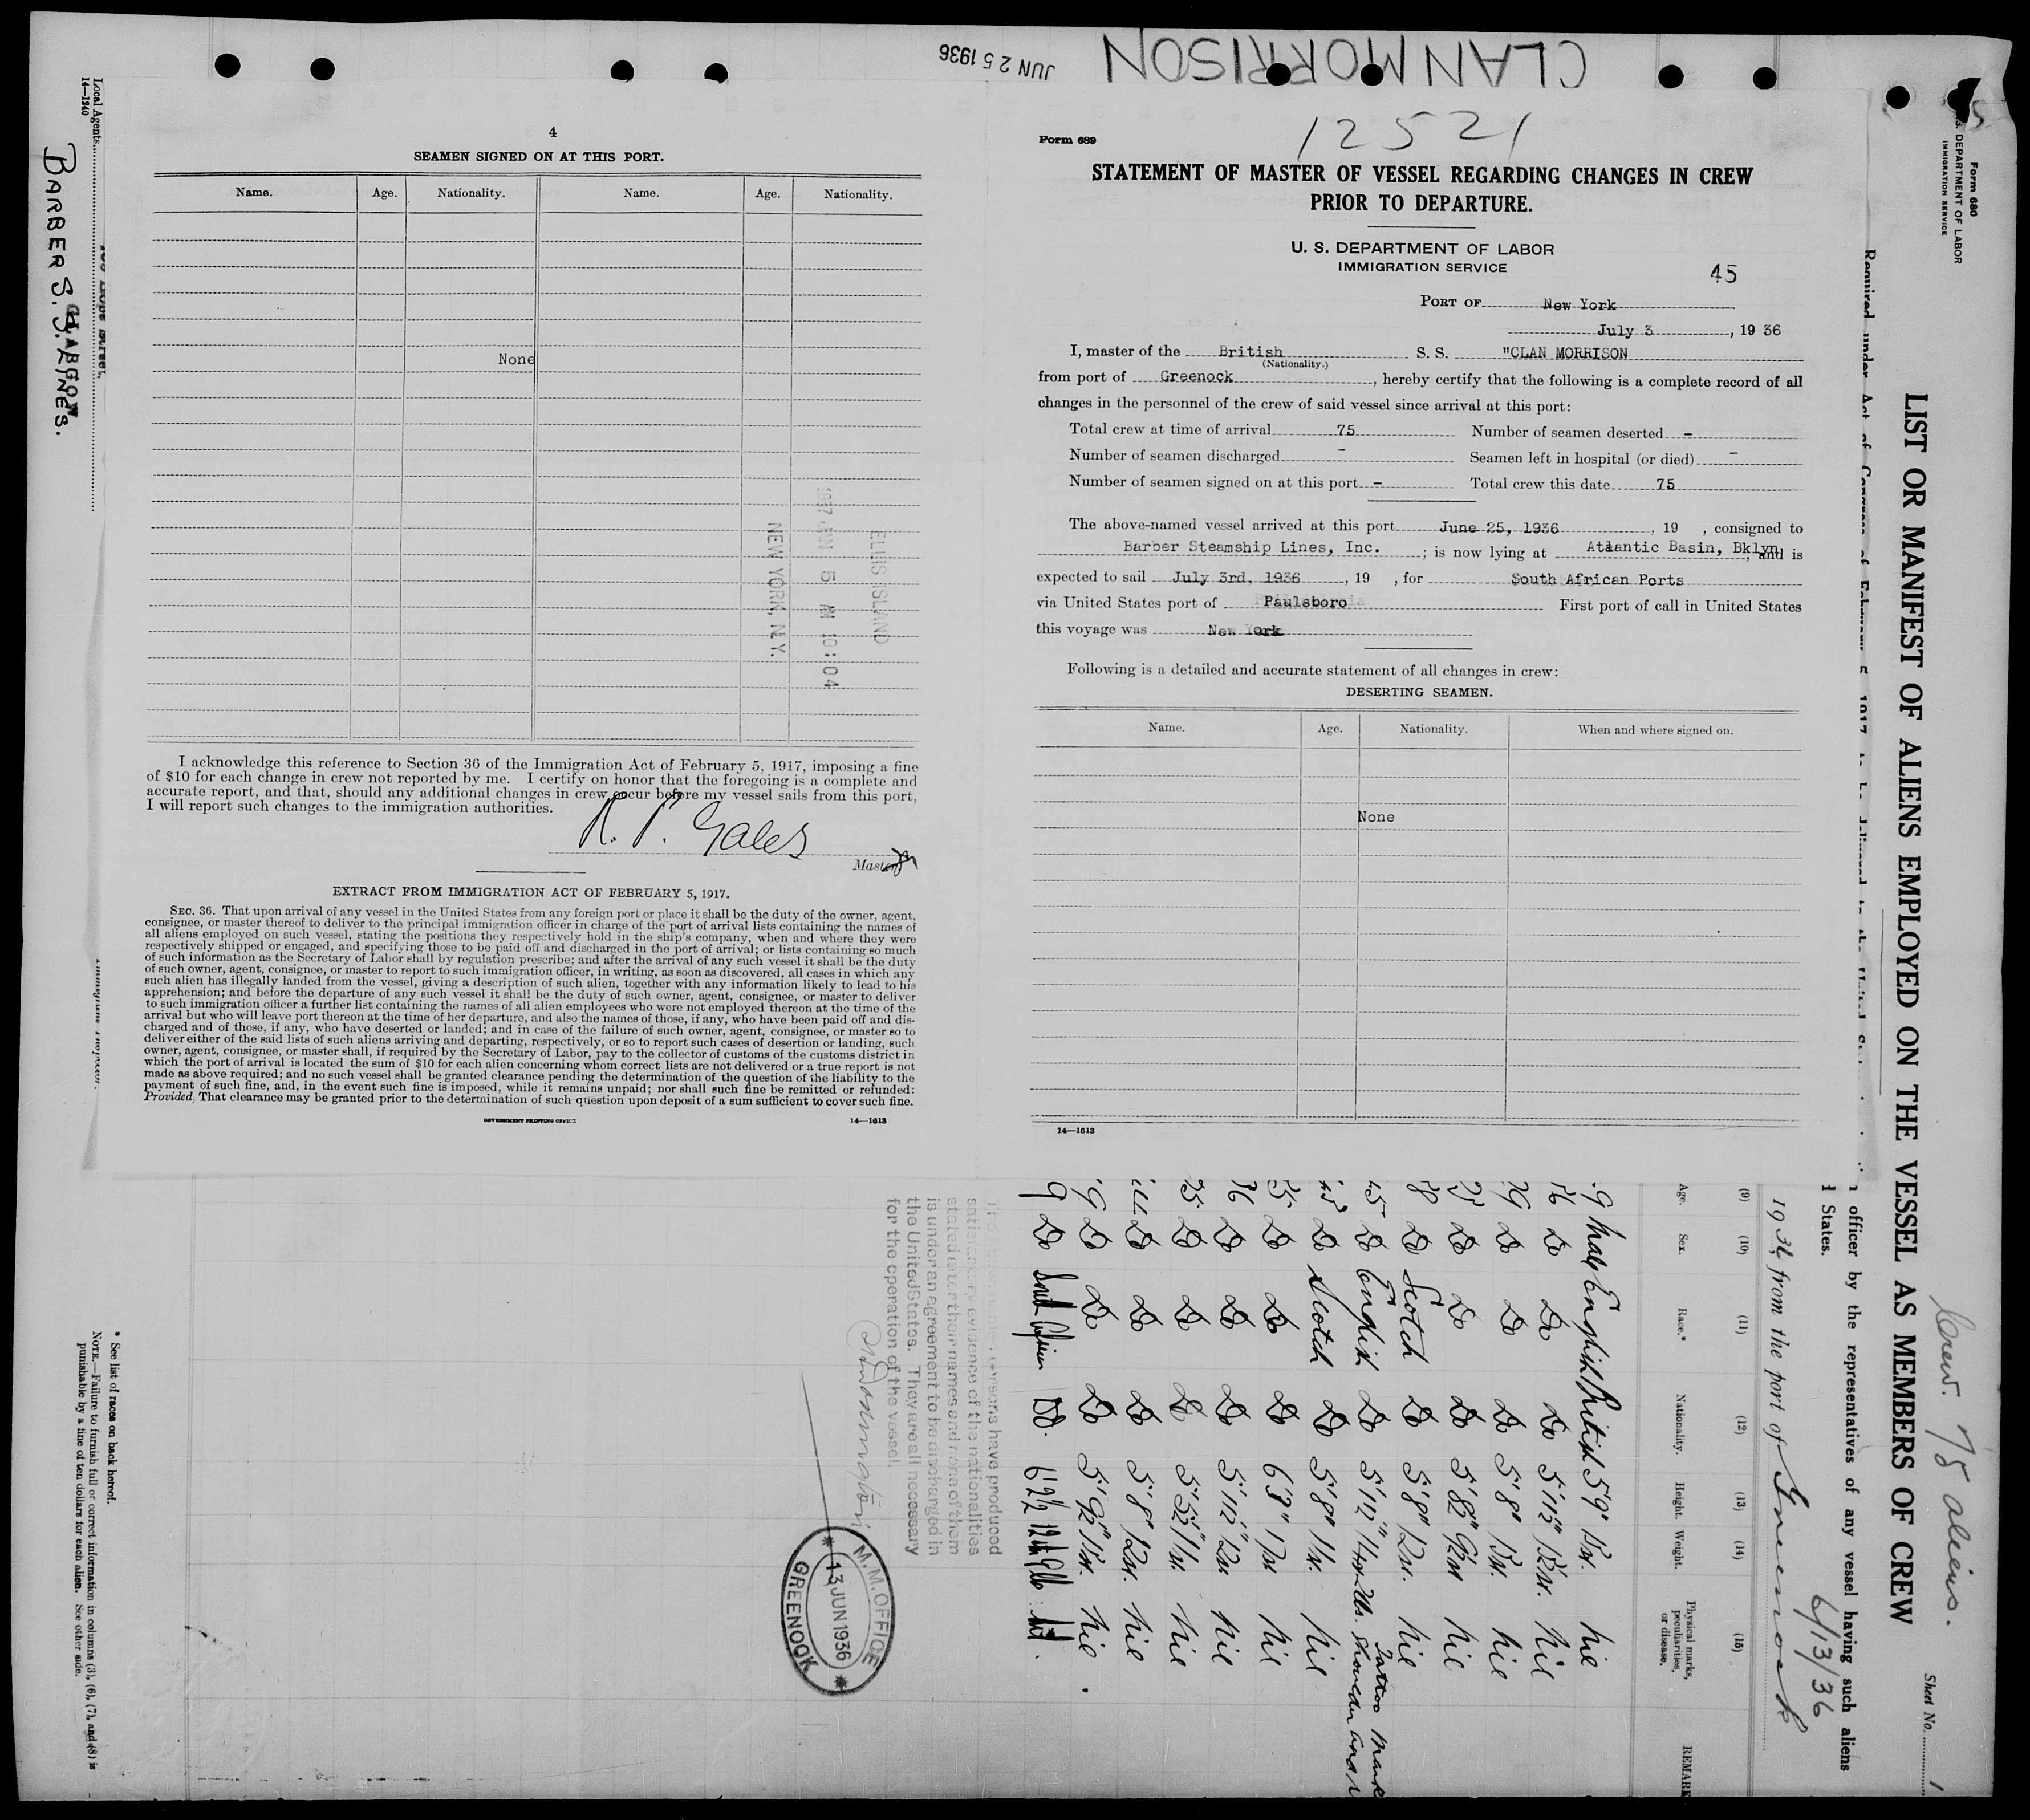 CLAN MORRISON
JUN 25 1936
4
SEAMEN SIGNED ON AT THIS PORT.
Name. Age. Nationality. Name. Age. Nationality.
None
ELLIS ISLAND
1937 JAN 5 AM 10:04
NEW YORK, N. Y.
I acknowledge this reference to Section 36 of the Immigration Act of February 5, 1917, imposing a fine
of $10 for each change in crew not reported by me. I certify on honor that the foregoing is a complete and
accurate report, and that, should any additional changes in crew occur before my vessel sails from this port,
I will report such changes to the immigration authorities.
R. P. Gales
Master
EXTRACT FROM IMMIGRATION ACT OF FEBRUARY 5, 1917.
SEC. 36. That upon arrival of any vessel in the United States from any foreign port or place it shall be the duty of the owner, agent,
consignee, or master thereof to deliver to the principal immigration officer in charge of the port of arrival lists containing the names of
all aliens employed on such vessel, stating the positions they respectively hold in the ship's company, when and where they were
respectively shipped or engaged, and specifying those to be paid off and discharged in the port of arrival; or lists containing so much
of such information as the Secretary of Labor shall by regulation prescribe; and after the arrival of any such vessel it shall be the duty
of such owner, agent, consignee, or master to report to such immigration officer, in writing, as soon as discovered, all cases in which any
such alien has illegally landed from the vessel, giving a description of such alien, together with any information likely to lead to his
apprehension; and before the departure of any such vessel it shall be the duty of such owner, agent, consignee, or master to deliver
to such immigration officer a further list containing the names of all alien employees who were not employed thereon at the time of the
arrival but who will leave port thereon at the time of her departure, and also the names of those, if any, who have been paid off and dis-
charged and of those, if any, who have deserted or landed; and in case of the failure of such owner, agent, consignee, or master so to
deliver either of the said lists of such aliens arriving and departing, respectively, or so to report such cases of desertion or landing, such
owner, agent, consignee, or master shall, if required by the Secretary of Labor, pay to the collector of customs of the customs district in
which the port of arrival is located the sum of $10 for each alien concerning whom correct lists are not delivered or a true report is not
made as above required; and no such vessel shall be granted clearance pending the determination of the question of the liability to the
payment of such fine, and, in the event such fine is imposed, while it remains unpaid; nor shall such fine be remitted or refunded:
Provided, That clearance may be granted prior to the determination of such question upon deposit of a sum sufficient to cover such fine.
GOVERNMENT PRINTING OFFICE 14—1613
Form 689
12521
STATEMENT OF MASTER OF VESSEL REGARDING CHANGES IN CREW
PRIOR TO DEPARTURE.
U. S. DEPARTMENT OF LABOR
IMMIGRATION SERVICE
45
PORT OF New York
July 3, 1936
I, master of the British S. S. "CLAN MORRISON
(Nationality.)
from port of Greenock, hereby certify that the following is a complete record of all
changes in the personnel of the crew of said vessel since arrival at this port:
Total crew at time of arrival 75 Number of seamen deserted -
Number of seamen discharged - Seamen left in hospital (or died) -
Number of seamen signed on at this port - Total crew this date 75
The above-named vessel arrived at this port June 25, 1936, 19 , consigned to
Barber Steamship Lines, Inc. ; is now lying at Atlantic Basin, Bklyn, and is
expected to sail July 3rd, 1936, 19 , for South African Ports
via United States port of Paulsboro First port of call in United States
this voyage was New York
Following is a detailed and accurate statement of all changes in crew:
DESERTING SEAMEN.
Name. Age. Nationality. When and where signed on.
None
14—1613
Form 680
U. S. DEPARTMENT OF LABOR
IMMIGRATION SERVICE
Crew. 75 aliens.
Sheet No. 1
LIST OR MANIFEST OF ALIENS EMPLOYED ON THE VESSEL AS MEMBERS OF CREW
officer by the representatives of any vessel having such aliens
States.
6/13/36
1936, from the port of Greenock
(9) (10) (11) (12) (13) (14) (15)
Age. Sex. Race.* Nationality. Height. Weight. Physical marks, peculiarities, or disease. REMARK
male English British 5'9" nil
Do Do Do nil
Do Do Do 5'8" nil
Do Do Do nil
Do Scotch Do 5'8" 12st. nil
Do English Do Tattoo Marks
Do Scotch Do 5'8" 11st. nil
Do Do Do nil
Do Do Do nil
Do Do Do nil
Do Do Do 5'8" 12st. nil
Do Do Do nil
Do Do.
persons have produced
satisfactory evidence of the nationalities
stated after their names and none of them
is under an agreement to be discharged in
the United States. They are all necessary
for the operation of the vessel.
M. M. OFFICE
13 JUN 1936
GREENOCK
* See list of races on back hereof.
NOTE.—Failure to furnish full or correct information in columns (3), (6), (7), and (8) is
punishable by a fine of ten dollars for each alien. See other side.
Local Agents
14—1240
BARBER S.S. LINES.